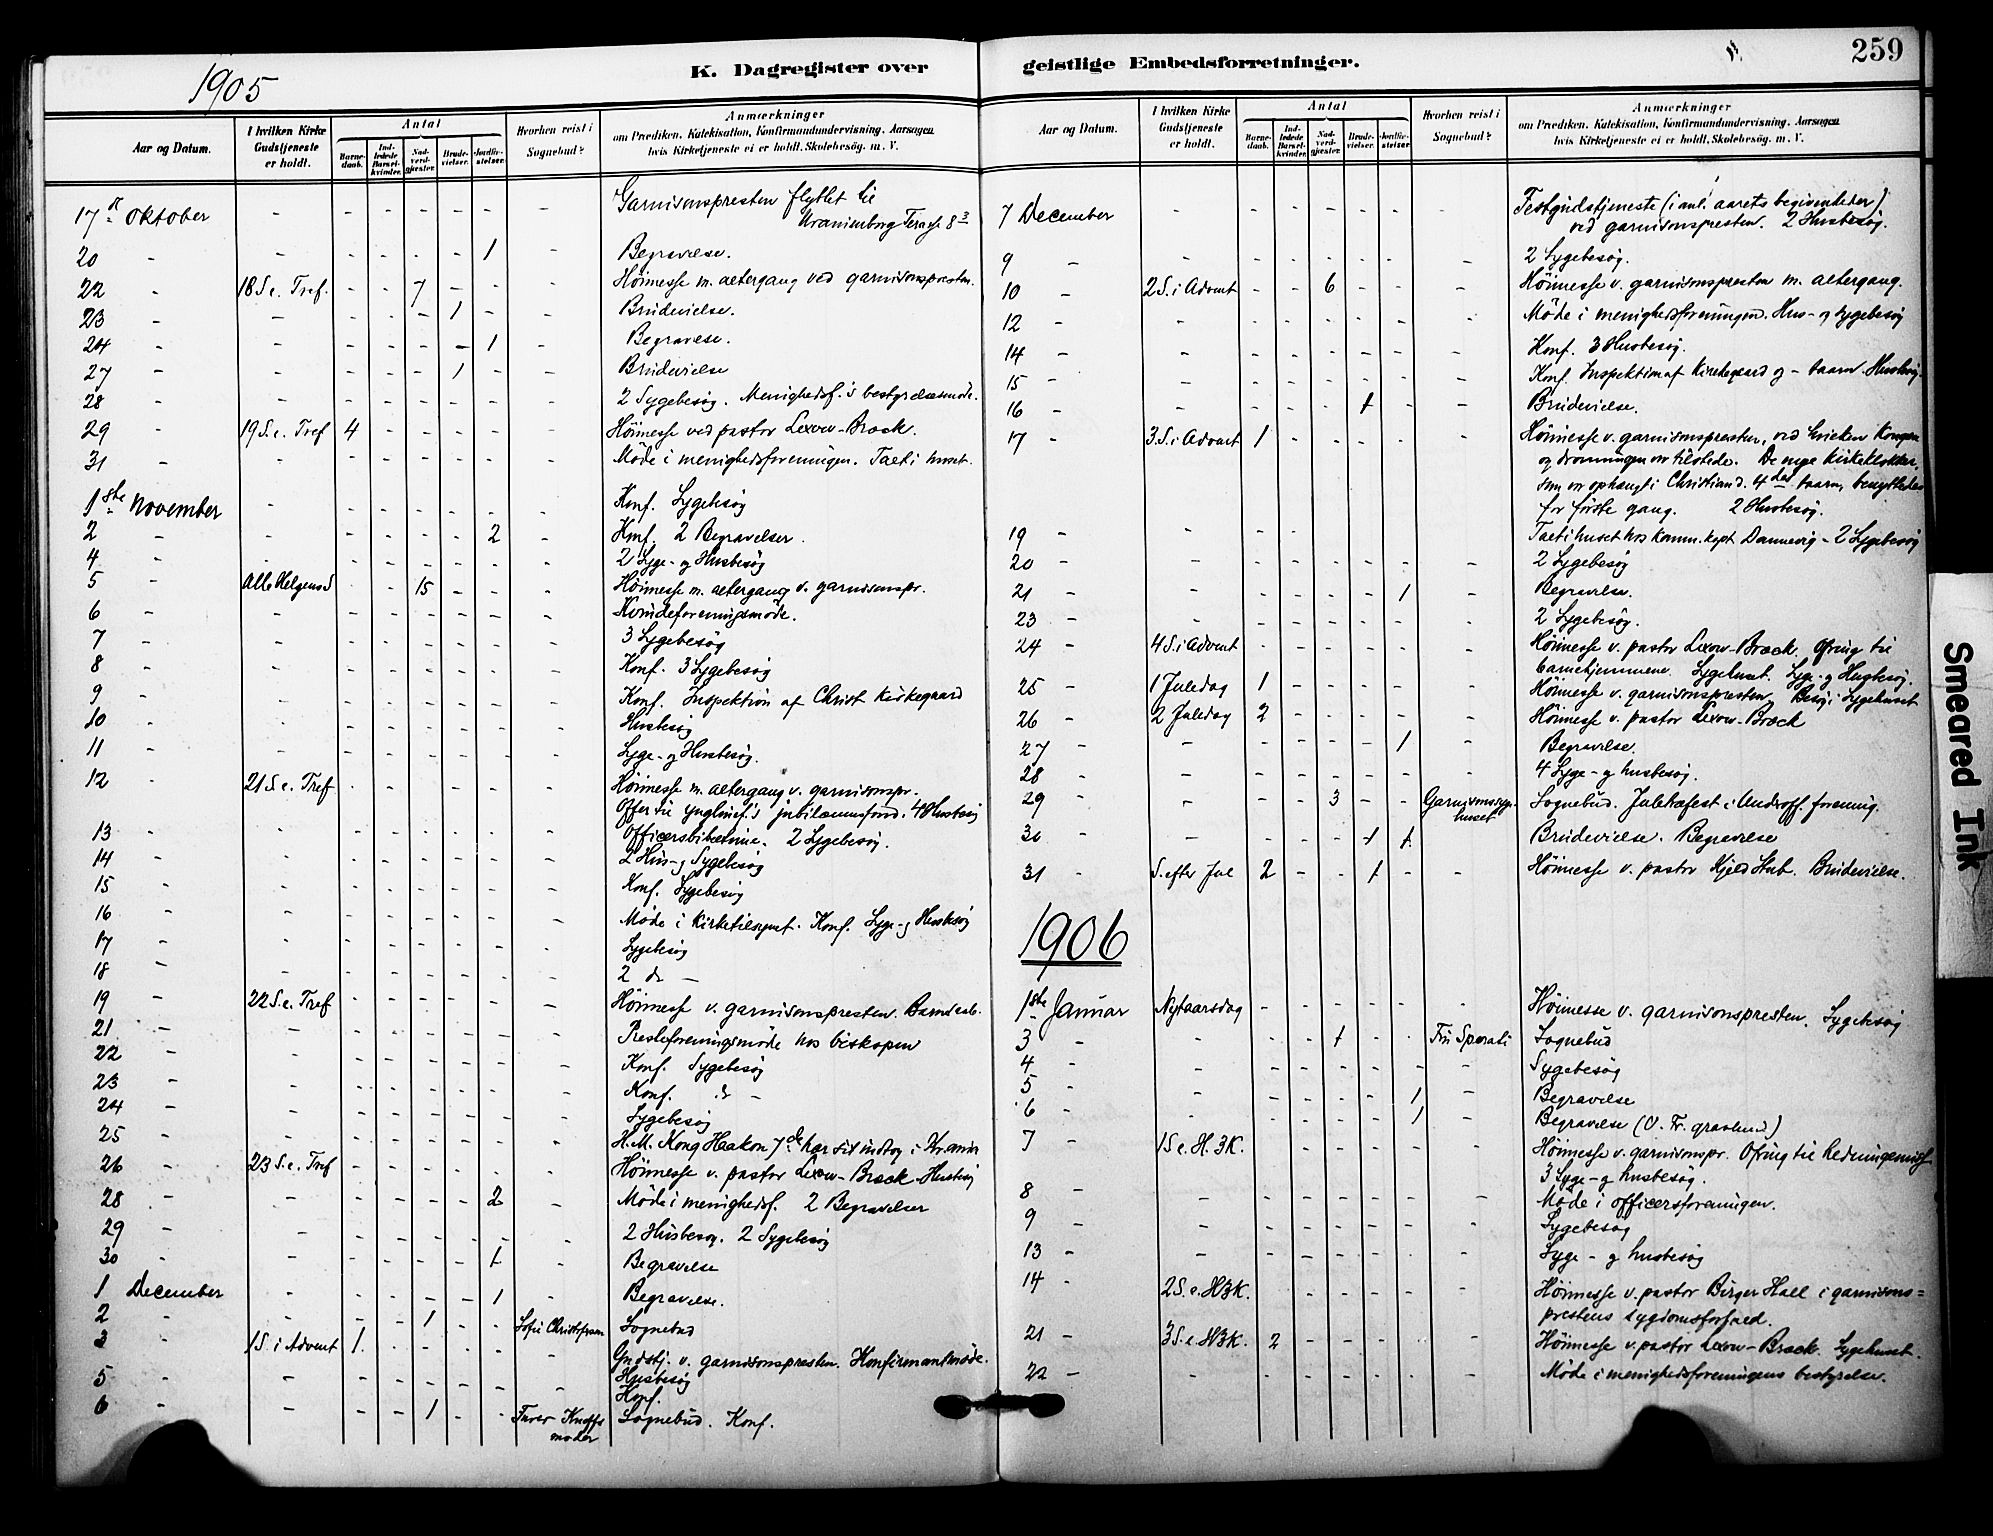 1905
K. Dagregister over
Aar og Datum.
I hvilken Kirke Gudstjeneste er holdt.
Antal
Barne-daab.
Ind-ledede Barsel-kvinder.
Nad-verd-gjæster.
Brude-vielser.
Jordfæ-stelser.
Hvorhen reist i Sognebud?
Anmærkninger
om Prædiken, Katekisation, Konfirmandundervisning, Aarsagen
hvis Kirketjeneste ei er holdt, Skolebesøg. m. V.
17de Oktober - - - - - - - Garnisonspresten flyttet til
Uranienborg Terasse 8 3
20 - - - - - - 1 - Begravelse.
22 - 18 S. e. Tref. - - 7 - - - Høimesse m. altergang ved garnisonspresten.
23 - - - - - 1 - - Brudevielse.
24 - - - - - - 1 - Begravelse.
27 - - - - - 1 - - Brudevielse
28 - - - - - - - - 2 Sygebesøg. Menighedsf.'s bestyrelsesmøde.
29 - 19 S. e. Tref 4 - - - - - Høimesse ved pastor Lexow-Brock.
31 - - - - - - - - Møde i menighedsforeningen. Tael i huset.
1ste November - - - - - - - Konf. Sygebesøg
2 - - - - - - 2 - Konf. 2 Begravelser.
4 - - - - - - - - 2 Syge- og Husbesøg
5 - Alle Helgens d - - 15 - - - Høimesse m. altergang v. garnisonspr.
6 - - - - - - - - Kvindeforeningsmøde.
7 - - - - - - - - 3 Sygebesøg
8 - - - - - - - - Konf. 3 Sygebesøg
9 - - - - - - - - Konf. Inspektion af Christ Kirkegaard
10 - - - - - - - - Husbesøg
11 - - - - - - - - Syge- og Husbesøg.
12 - 21 S. e. Tref - - - - - - Høimesse m. altergang v. garnisonspr.
Offer til ynglinef.'s jubilæumsfond. 4 Husbesøg
13 - - - - - - - - Officersbibeltime. 2 Sygebesøg.
14 - - - - - - - - 2 Hus- og Sygebesøg
15 - - - - - - - - Konf. Sygebesøg
16 - - - - - - - - Møde i Kirketilsynet. Konf. Syge- og Husbesøg
17 - - - - - - - - Sygebesøg
18 - - - - - - - - 2 do -
19 - 22 S. e. Tref - - - - - - Høimesse v. garnisonspresten.
21 - - - - - - - - Presteforeningsmøde hos biskopen
22 - - - - - - - - Konf. Sygebesøg
23 - - - - - - - - Konf. do -
24 - - - - - - - - Sygebesøg
25 - - - - - - - - H. M. Kong Haakon 7de har sit indtog i Kr.ania
26 - 23 S. e. Tref - - - - - - Høimesse v. pastor Lexow-Brock. Husbesøg
28 - - - - - - 2 - Møde i menighedsf. 2 Begravelser
29 - - - - - - - - 2 Husbesøg. 2 Sygebesøg
30 - - - - - - 1 - Begravelse
1 December - - - - - - 1 - Begravelse.
2 - - - - 1 - - Sofie Christofersen Sognebud
3 - 1 S. i Advent 1 - - - - - Gudstj. v. garnisonspresten. Konfirmantmøde.
5 - - - - - - - - Husbesøg
Konf.
6 - - - - 1 - - Knoffs Sognebud. Konf.
moder
259
geistlige Embedsforretninger.
Aar og Datum.
I hvilken Kirke Gudstjeneste er holdt.
Antal
Barne-daab.
Ind-ledede Barsel-kvinder.
Nad-verd-gjester.
Brude-vielser.
Jordfæ-stelser
Hvorhen reist i Sognebud?
Anmærkninger
om Prædiken, Katekisation, Konfirmandundervisning, Aarsagen
hvis Kirketjeneste ei er holdt, Skolebesøg. m. V.
7 December - - - - - - - Festgudstjeneste (i anl. aarets begivenheder)
ved garnisonspresten. 2 Husbesøg.
9 - - - - - - - - 2 Sygebesøg.
10 - 2 S. i Advent - - 6 - - - Høimesse v. garnisonspresten m. altergang.
12 - - - - - - - - Møde i menighedsforeningen. Hus- og Sygebesøg
14 - - - - - - - - Konf. 3 Husbesøg.
15 - - - - - - - - Konf. Inspektion af Kirkegaard og - taarn. Husbesøg.
16 - - - - - 1 - - Brudevielse.
17 - 3 S. i Advent 1 - - - - - Høimesse v. garnisonspresten, ved hvilken Kongen
og dronningen var tilstede. De nye Kirkeklokker,
som er ophængt i Christiand. 4des taarn, benyttedes
for første gang. 2 Husbesøg.
19 - - - - - - - Tael i huset hos Komm. kapt. Dannevig - 2 Sygebesøg
20 - - - - - - - - 2 Sygebesøg
21 - - - - - - 1 - Begravelse.
23 - - - - - - - - 2 Sygebesøg.
24 - 4 S. i Advent - - - - - - Høimesse v. pastor Lexow-Brock. Ofring til
barnehjemmene. Sygehuset. Syge- og Husbesøg.
25 - 1 Juledag 1 - - - - - Høimesse v. garnisonspresten. Besøg i Sygehuset
26 - 2 Juledag 2 - - - - - Høimesse v. pastor Lexow-Brock
27 - - - - - - 1 - Begravelse.
28 - - - - - - - - 4 Syge- og husbesøg.
29 - - - - 3 - - Garnisonssyge- Sognebud. Juletræfest i Underoff. forening.
huset
30 - - - - - 1 1 Brudevielse. Begravelse
31 - S. efter Jul 2 - - 1 - - Høimesse v. pastor Kjeld Stub. Brudevielse.
1906
1ste Januar Nytaarsdag - - - - - - Høimesse v. garnisonspresten. Sygebesøg
3 - - - - 1 - - Fru Sperati Sognebud
4 - - - - - - - - Sygebesøg
5 - - - - - - 1 - Begravelse
6 - - - - - - 1 - Begravelse (V. Fr. gravlund)
7 - 1 S. e. H. 3 K. - - - - - - Høimesse v. garnisonspr. Ofring til hedningemiss.
3 Syge- og husbesøg.
8 - - - - - - - - Møde i officersforeningen.
9 - - - - - - - - Sygebesøg
13 - - - - - - - - Syge- og husbesøg
14 - 2 S. e. H 3 K. - - - - - - Høimesse v. pastor Birger Hall i garnisons=
prestens sygdomsforfald.
21 - 3 S. e. H 3 K. 2 - - - - - Høimesse v. pastor Lexow-Brock. Sygehuset.
22 - - - - - - - Møde i menighedsforeningens bestyrelse.
Smeared Ink